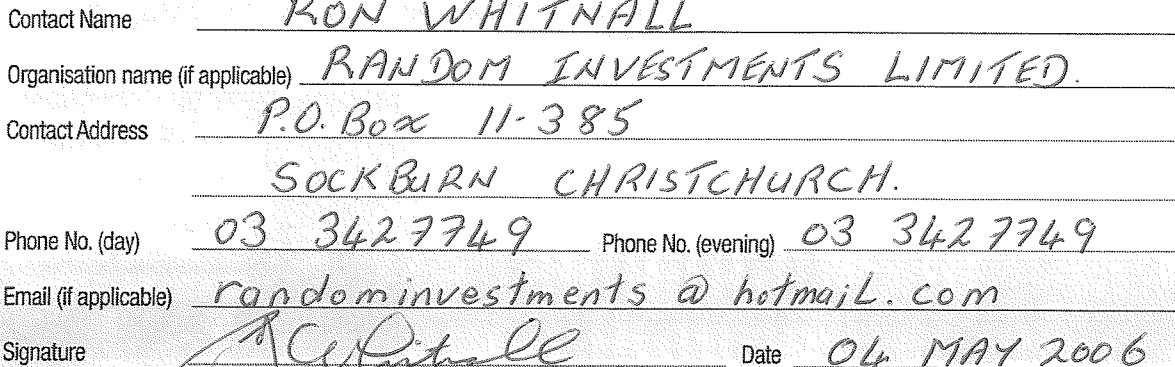 Contact Name RON WHITNALL
Organisation name (if applicable) RANDOM INVESTMENTS LIMITED.
Contact Address P.O. Box 11-385
SOCKBURN CHRISTCHURCH.
Phone No. (day) 03 3427749 Phone No. (evening) 03 3427749
Email (if applicable) randominvestments @ hotmaiL.com
Signature Date 04 MAY 2006